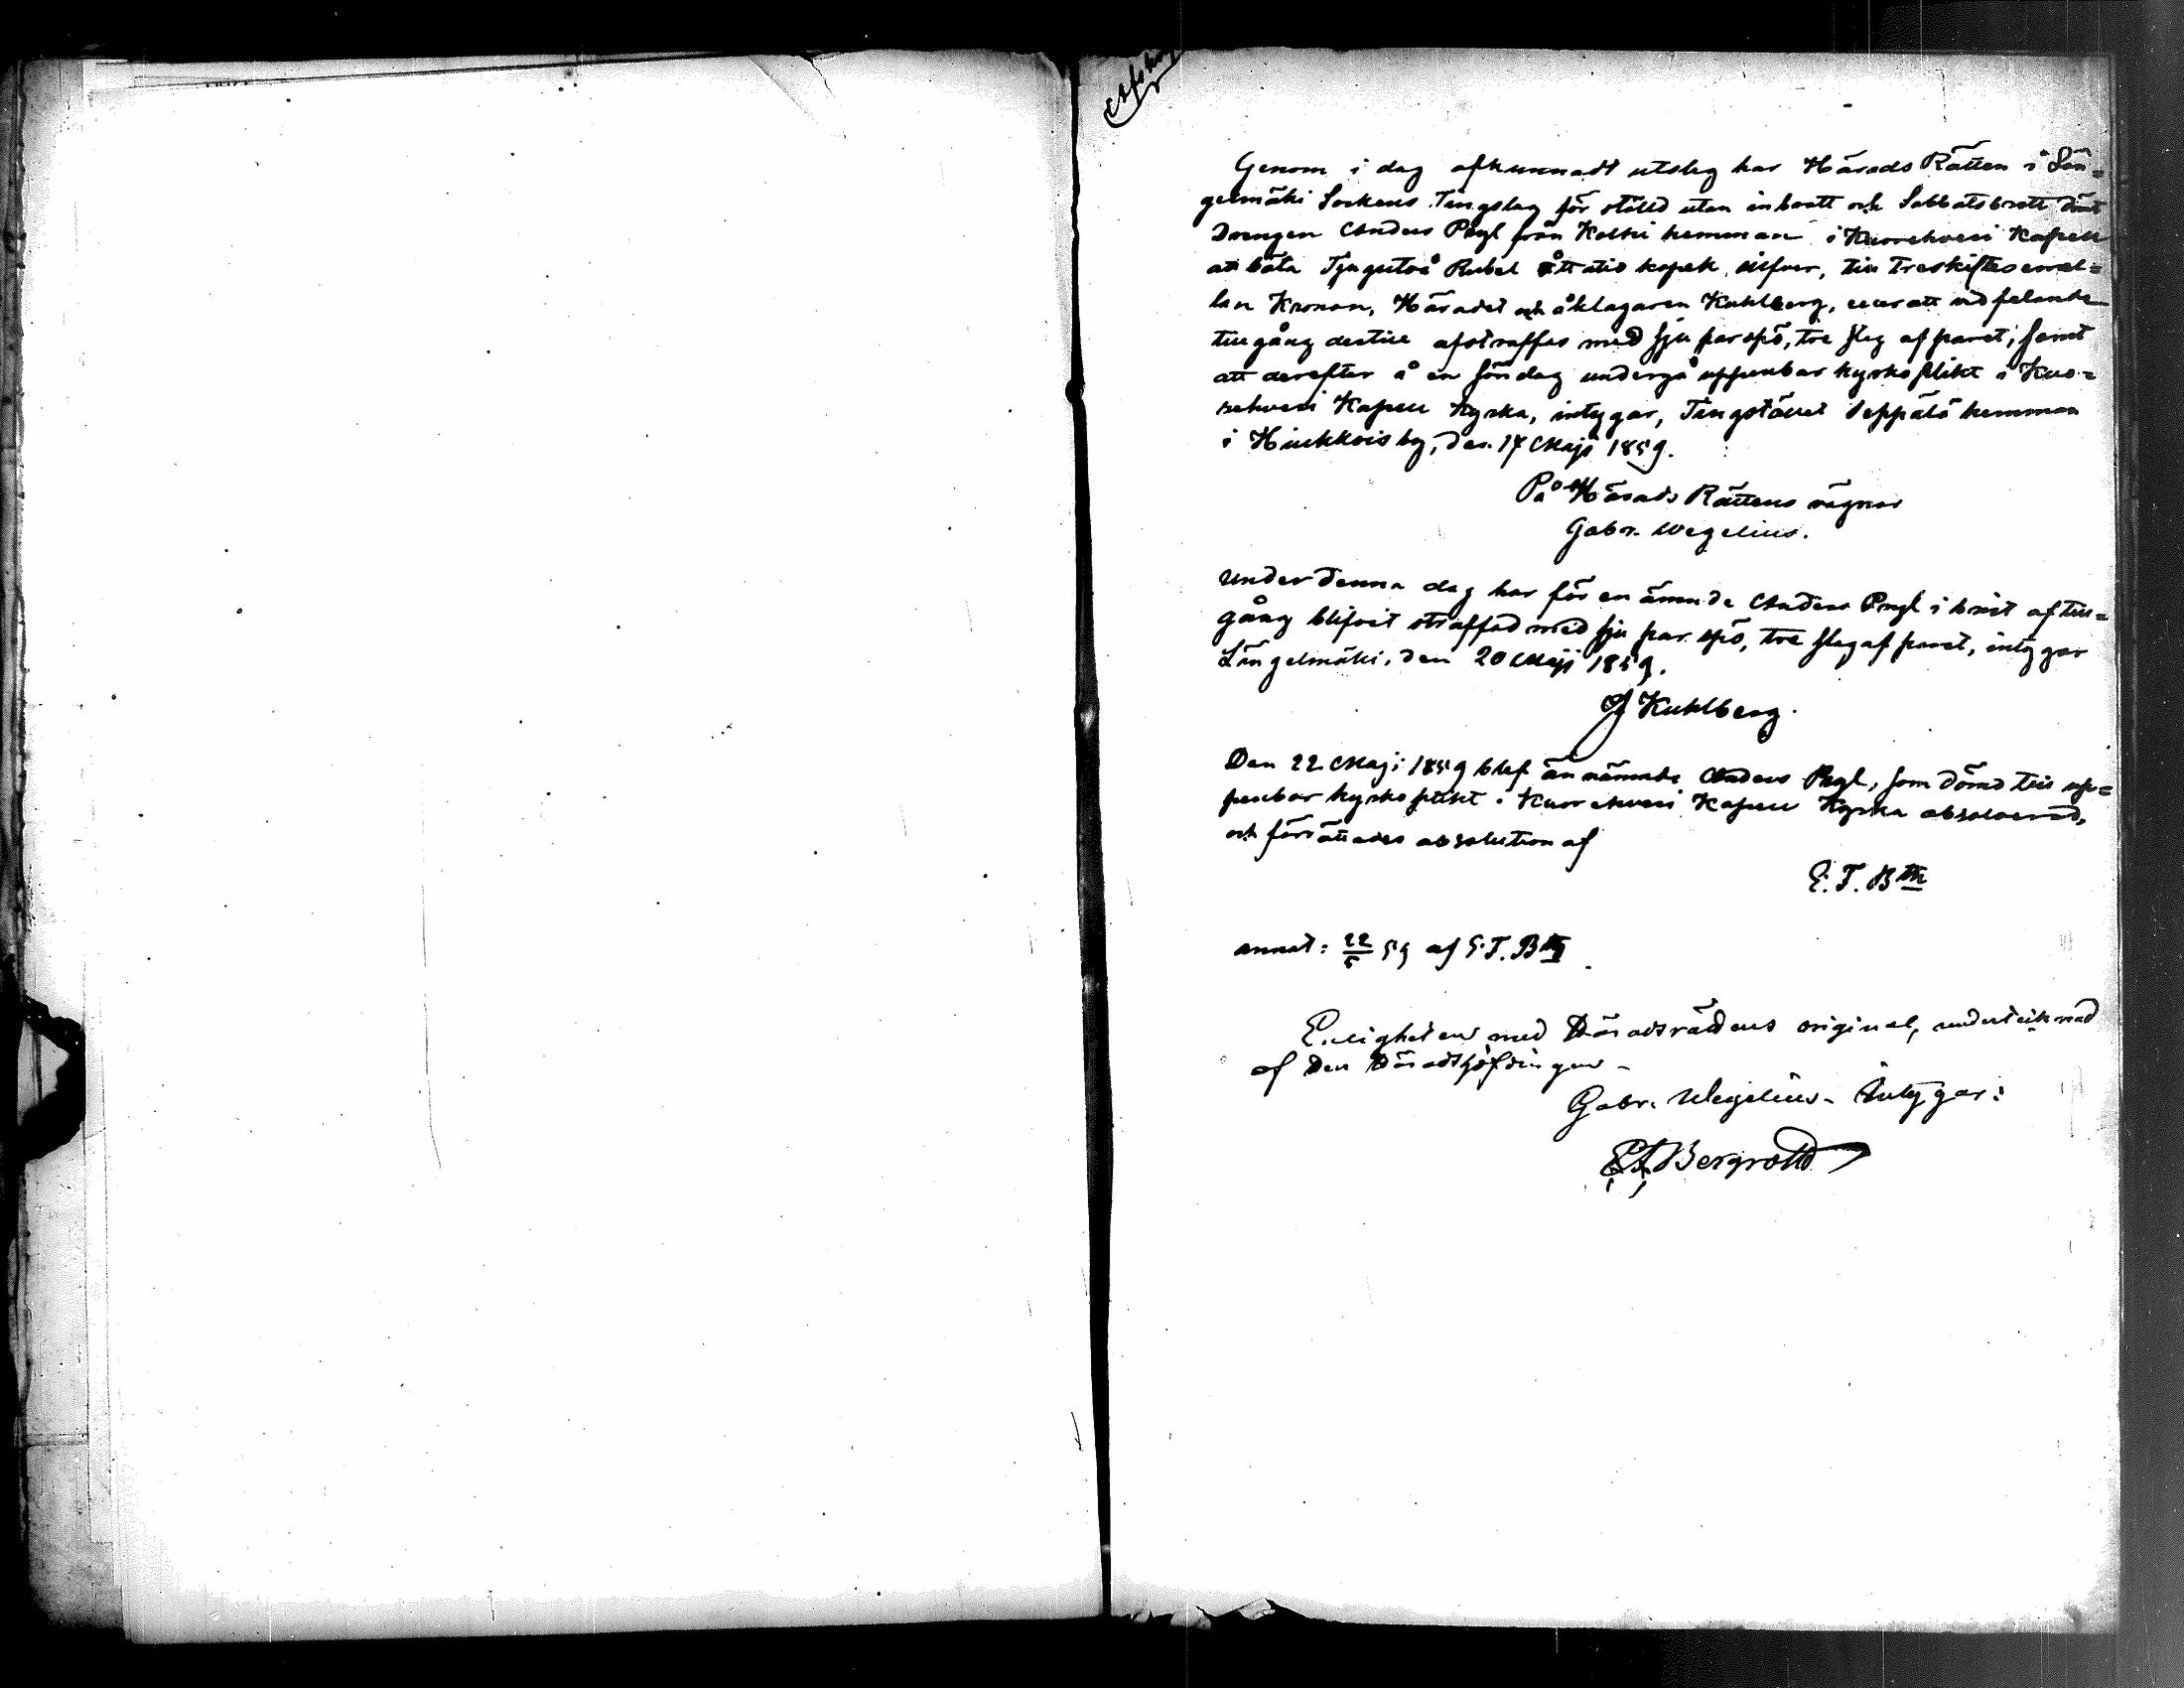 Afskrift
Genom i dag afkunnadt utslag har Härads Rätten i Län=
gelmäki Sockens Tingslag för stöld utan inbrott och Sabbatsbrott dömt
Drengen Anders Pryl från Koltti hemman i Kuorehvesi Kapell
att böta Tjugutvå Rubel åttatio kopek silfver, till Treskiftes emel=
lan Kronan, Häradet och åklagaren Kuhlberg, eller att vid felande
tillgång dertill afstraffas med sju par spö, tre slag af paret; samt
att derefter å en söndag undergå uppenbar kyrkoplikt i Kuo=
rehvesi Kapell Kyrka, intygar, Tingstället Seppälä hemman
i Hiukkois by, den 17 Maji 1859.
På Härads Rättens vägnar
Gabr. Wegelius.
Under denna dag har förenämnde Anders Pryl i brist af till=
gång blifvit straffad med sju par spö, tre slag af paret, intygar
Längelmäki, den 20 Maji 1859.
J Kuhlberg.
Den 22 Maji 1859 blef ännämnde Anders Pryl, som dömd till up=
penbar kyrkoplikt i Kuorehvesi Kapell Kyrka absolverad,
och förrättades absolution af
E. T. Bth
annot: 22/5 59 af E. T. Bth
Enligheten med Häradsrättens original, undertecknad
af den Häradshöfdingen
Gabr. Wegelius. Intygar:
E T Bergroth